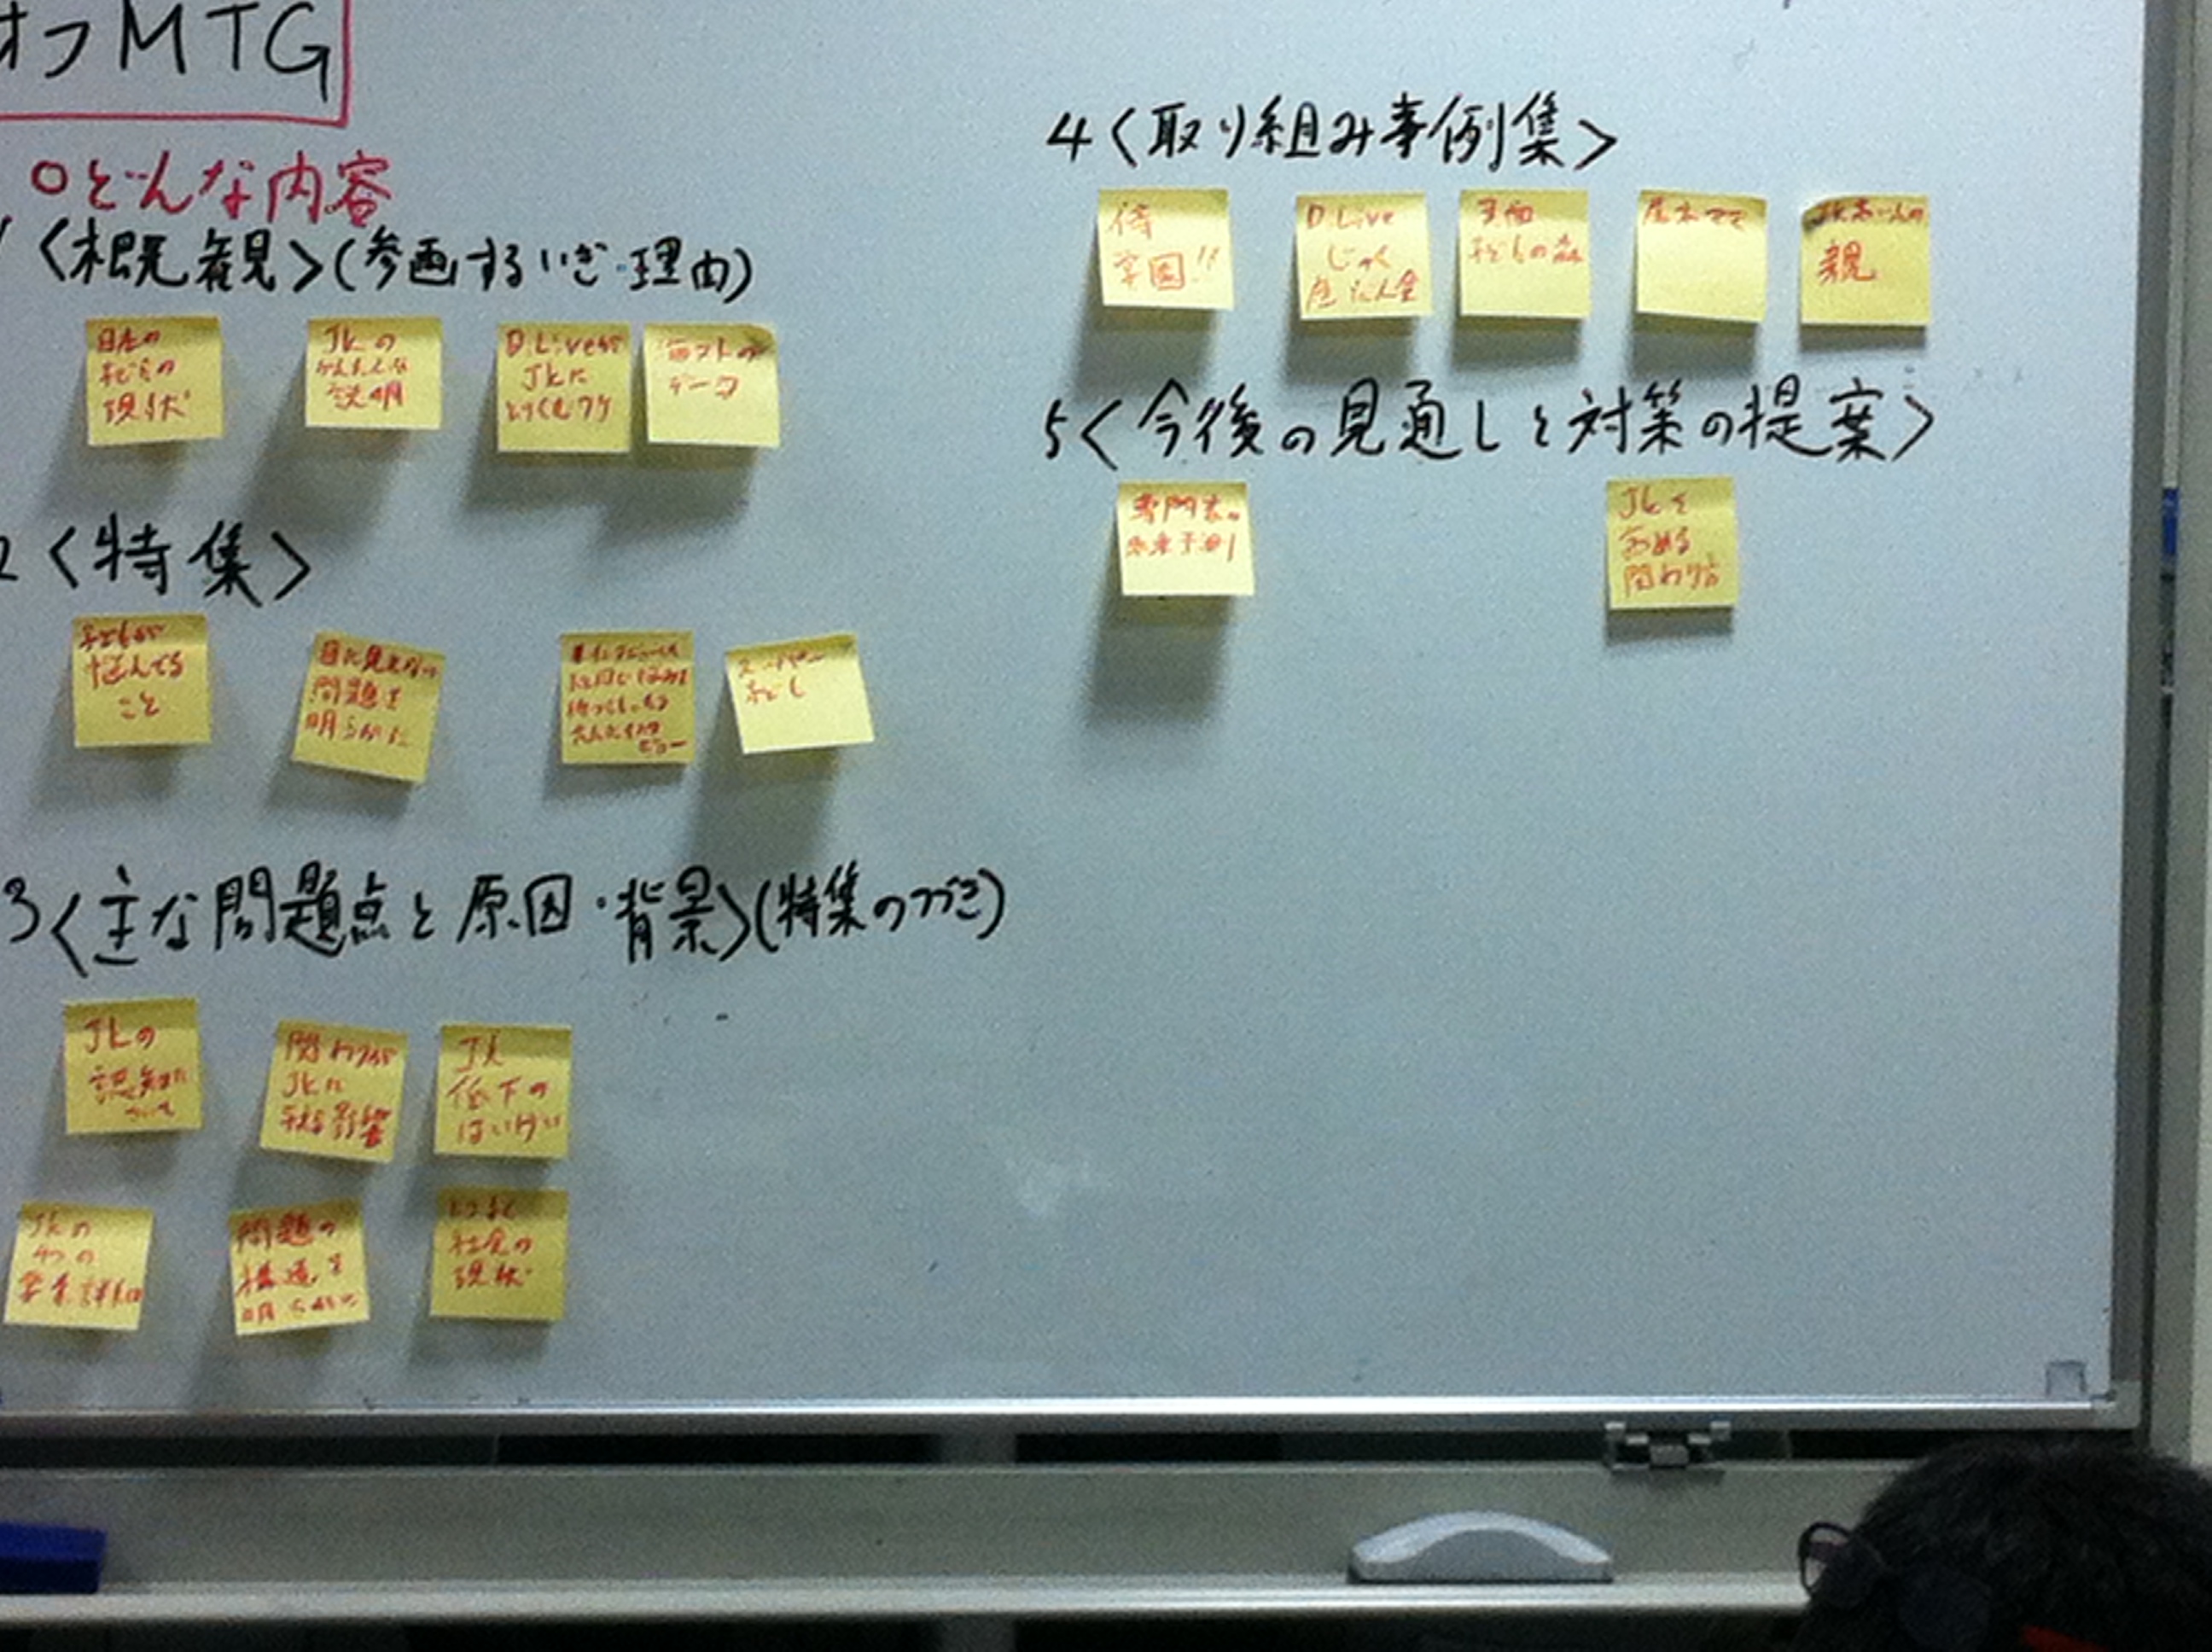 オフMTG
○どんな内容
1〈概観〉(参画するいぎ・理由)
日本の
子どもの
現状
JKの
かんたんな
説明
D.Liveが
JKに
とりくむワケ
データ
2〈特集〉
子どもが
悩んでる
こと
目に見えない
問題を
明らかに
子ども
3〈主な問題点と原因・背景〉(特集のつづき)
JKの
認知に
ついて
関わり方が
JKに
与える影響
JK
低下の
はいけい
JKの
4つの
要素詳細
問題の
構造を
明らかに
社会の
現状
4〈取り組み事例集〉
侍
学園!!
D.Live
じゅく
子どもの森
親
5〈今後の見通しと対策の提案〉
専門家の
未来予測
JKを
高める
関わり方